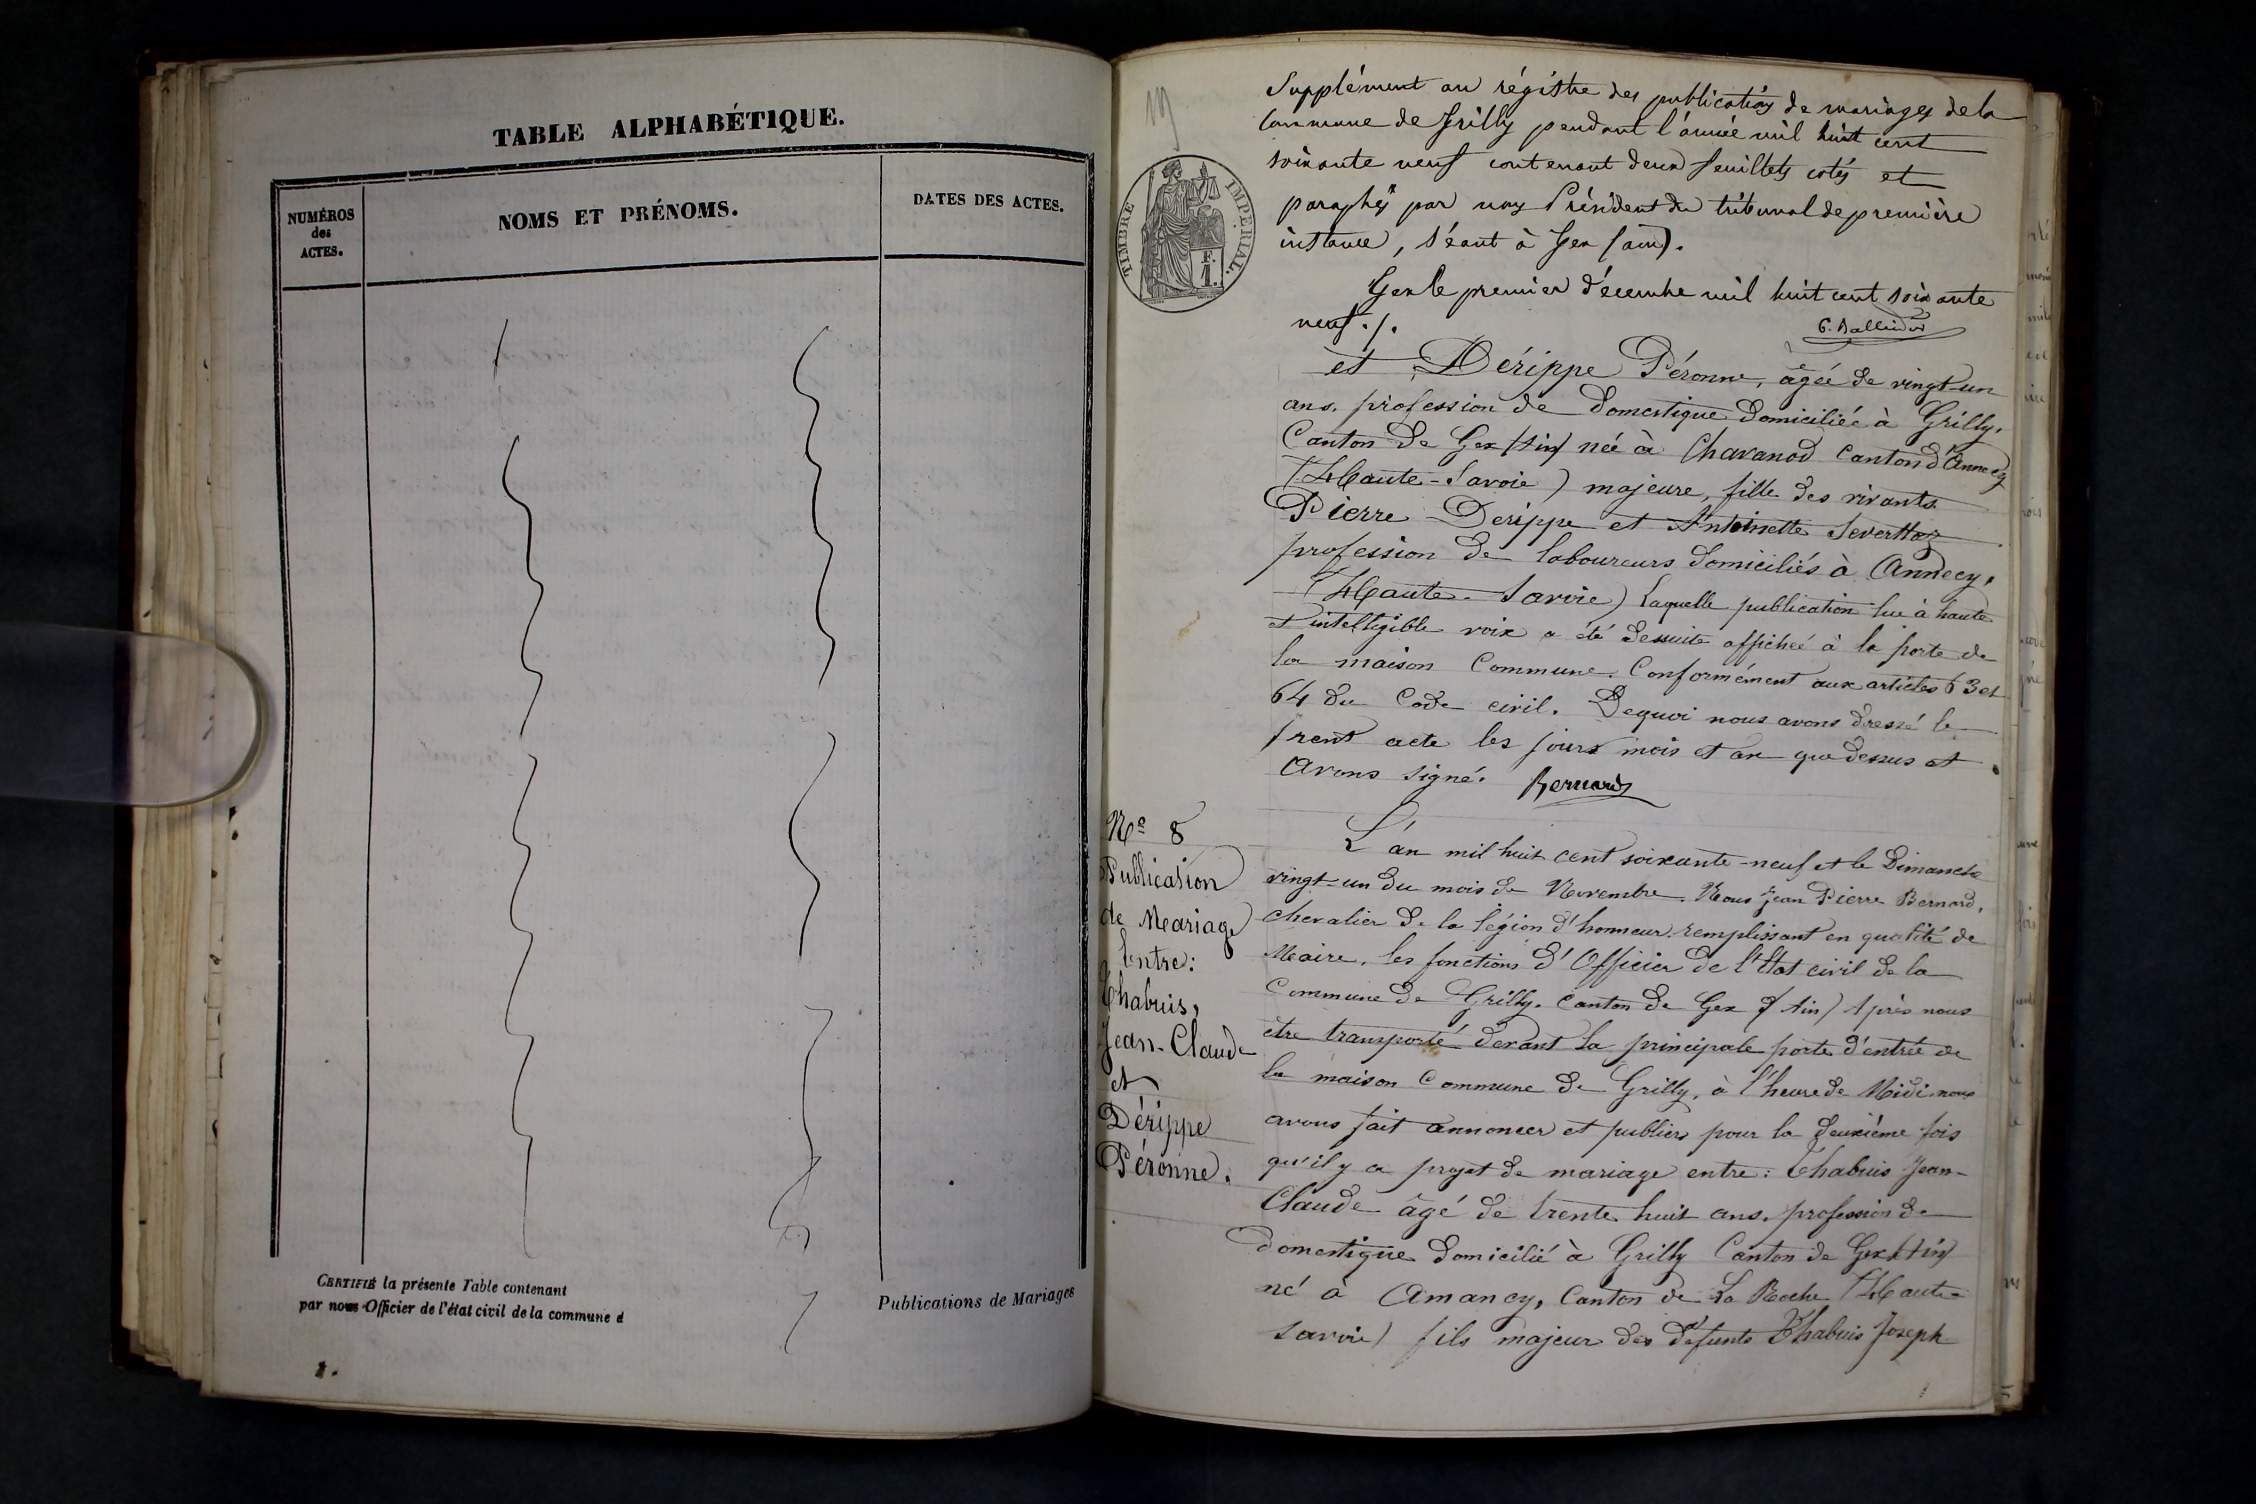 TABLE ALPHABÉTIQUE.
NUMÉROS
des
ACTES.
NOMS ET PRÉNOMS.
DATES DES ACTES.
CERTIFIÉ la présente Table contenant
par nous Officier de l'état civil de la commune d
Publications de Mariages
1.
TIMBRE IMPÉRIAL.
F.
1.
Supplément au régistre des publications de mariages de la
Commune de Grilly pendant l'année mil huit cent
soixante neuf contenant deux feuillets cotés et
paraphés par nous Président du tribunal de première
instance, séant à Gex (ain).
Gex le premier décembre mil huit cent soixante
neuf ./.
et Dérippe Péronne, âgée de vingt-un
ans, profession de Domestique Domiciliée à Grilly,
Canton de Gex (Ain) née à Chavanod Canton d'Annecy
(Haute-Savoie) majeure, fille des vivants
Pierre Derippe et Antoinette
profession de laboureurs Domiciliés à Annecy,
(Haute-Savoie) Laquelle publication lue à haute
et intelligible voix a été dessuite affichée à la porte de
la maison Commune. Conformément aux articles 63 et
64 du Code civil. Dequoi nous avons dressé le
prent acte les jours mois et an que dessus et
avons signé. Bernard
Nº 8
Publication
de Mariage
Entre:
Chabuis,
Jean-Claude
et
Dérippe
Péronne.
L'an mil huit cent soixante-neuf et le Dimanche
vingt-un du mois de Novembre. Nous Jean Pierre Bernard,
chevalier de la légion d'honneur remplissant en qualité de
Maire, les fonctions d'Officier de l'Etat civil de la
Commune de Grilly. Canton de Gex (Ain) Après nous
être transporté devant la principale porte d'entrée de
la maison Commune de Grilly, à l'heure de Midi nous
avons fait annoncer et publier pour la deuxième fois
qu'il y a projet de mariage entre: Chabuis Jean-
Claude âgé de trente huit ans, profession de
domestique Domicilié à Grilly Canton de Gex (Ain)
né à Amancy, Canton de La Roche (Haute-
Savoie) fils majeur des défunts Chabuis Joseph